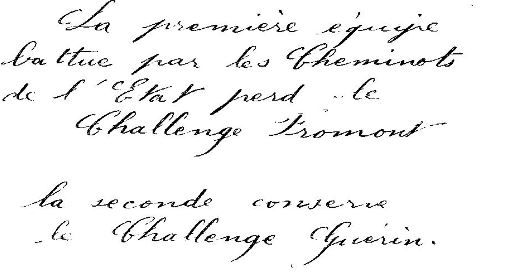 La première équipe
battue par les Cheminots
de l'Etat perd le
Challenge Fromont
la seconde conserve
le Challenge Guérin.